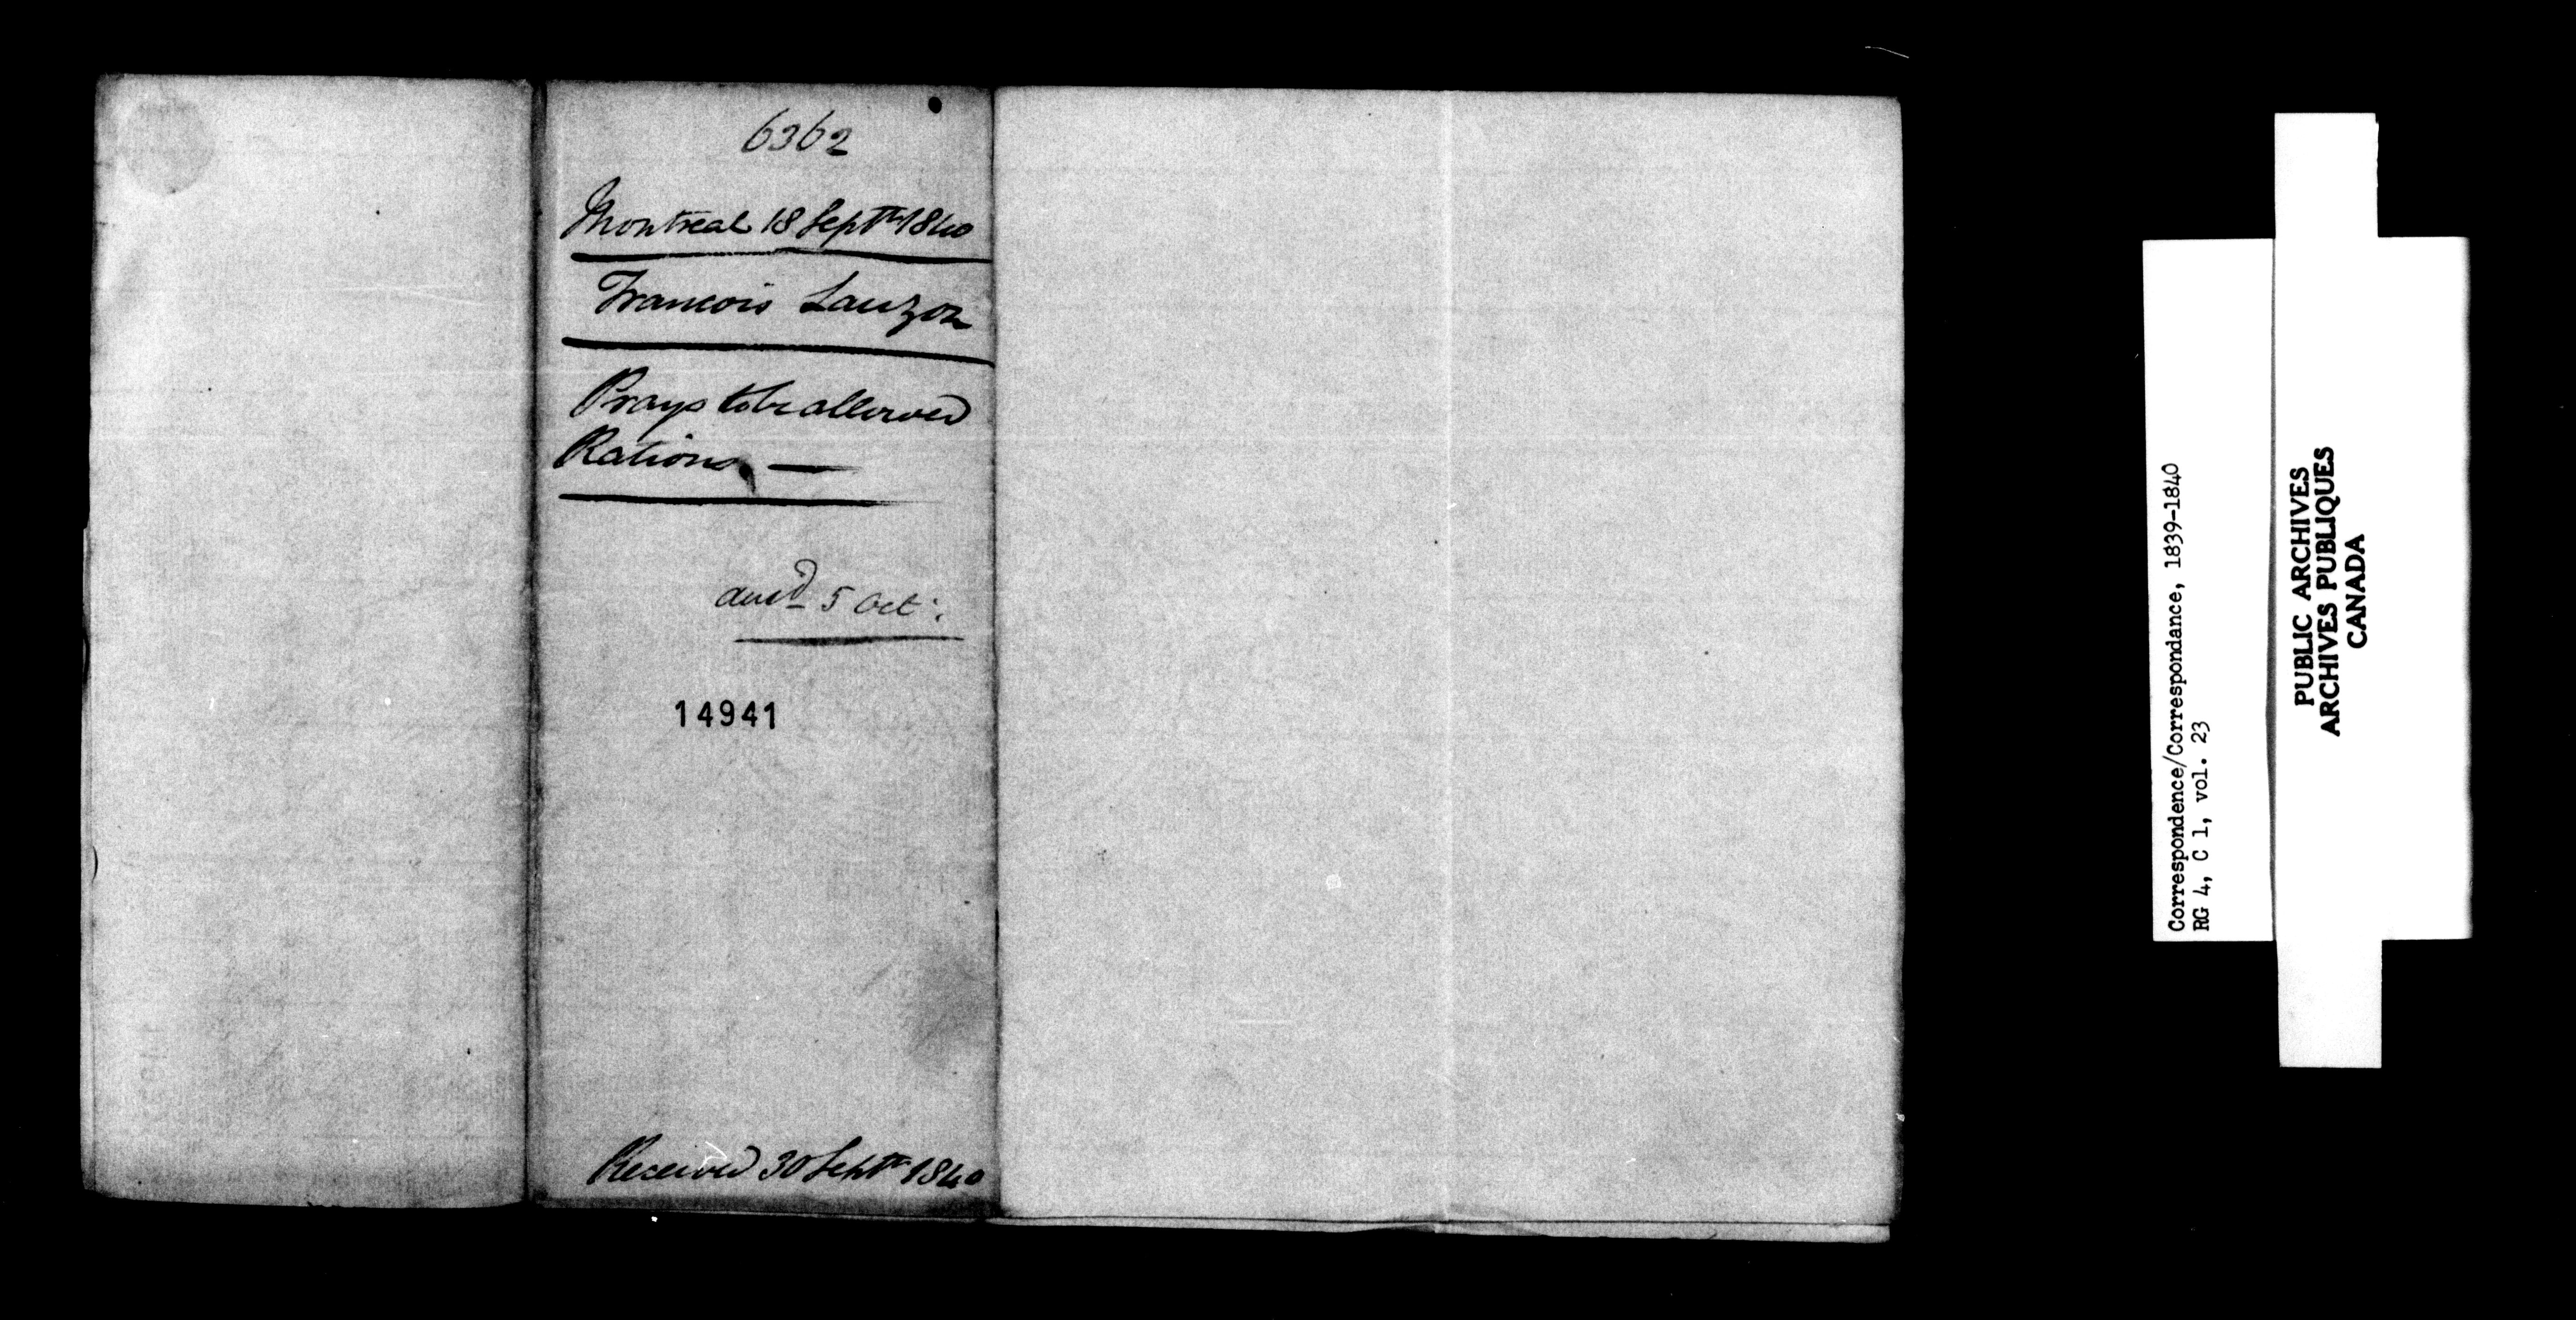 6362
Montreal 18 Septr 1840
Francois Lauzon
Prays to be allowed
Rations —
ansd 5 Oct:
14941
Received 30 Septr 1840
Correspondence/Correspondance, 1839-1840
RG 4, C 1, vol. 23
PUBLIC ARCHIVES
ARCHIVES PUBLIQUES
CANADA